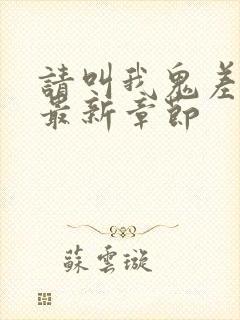 請叫我鬼差
最新章節
蘇雲璇